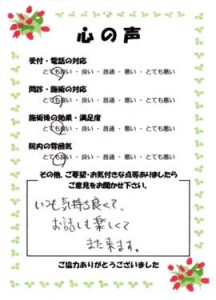 心の声
受付・電話の対応
とても良い ・ 良い ・ 普通 ・ 悪い ・ とても悪い
問診・施術の対応
とても良い ・ 良い ・ 普通 ・ 悪い ・ とても悪い
施術後の効果・満足度
とても良い ・ 良い ・ 普通 ・ 悪い ・ とても悪い
院内の雰囲気
とても良い ・ 良い ・ 普通 ・ 悪い ・ とても悪い
その他、ご要望・お気付きな点等ありましたら
ご意見をお聞かせ下さい。
いつも気持ち良くて、
お話しも楽しくて
また来ます。
ご協力ありがとうございました